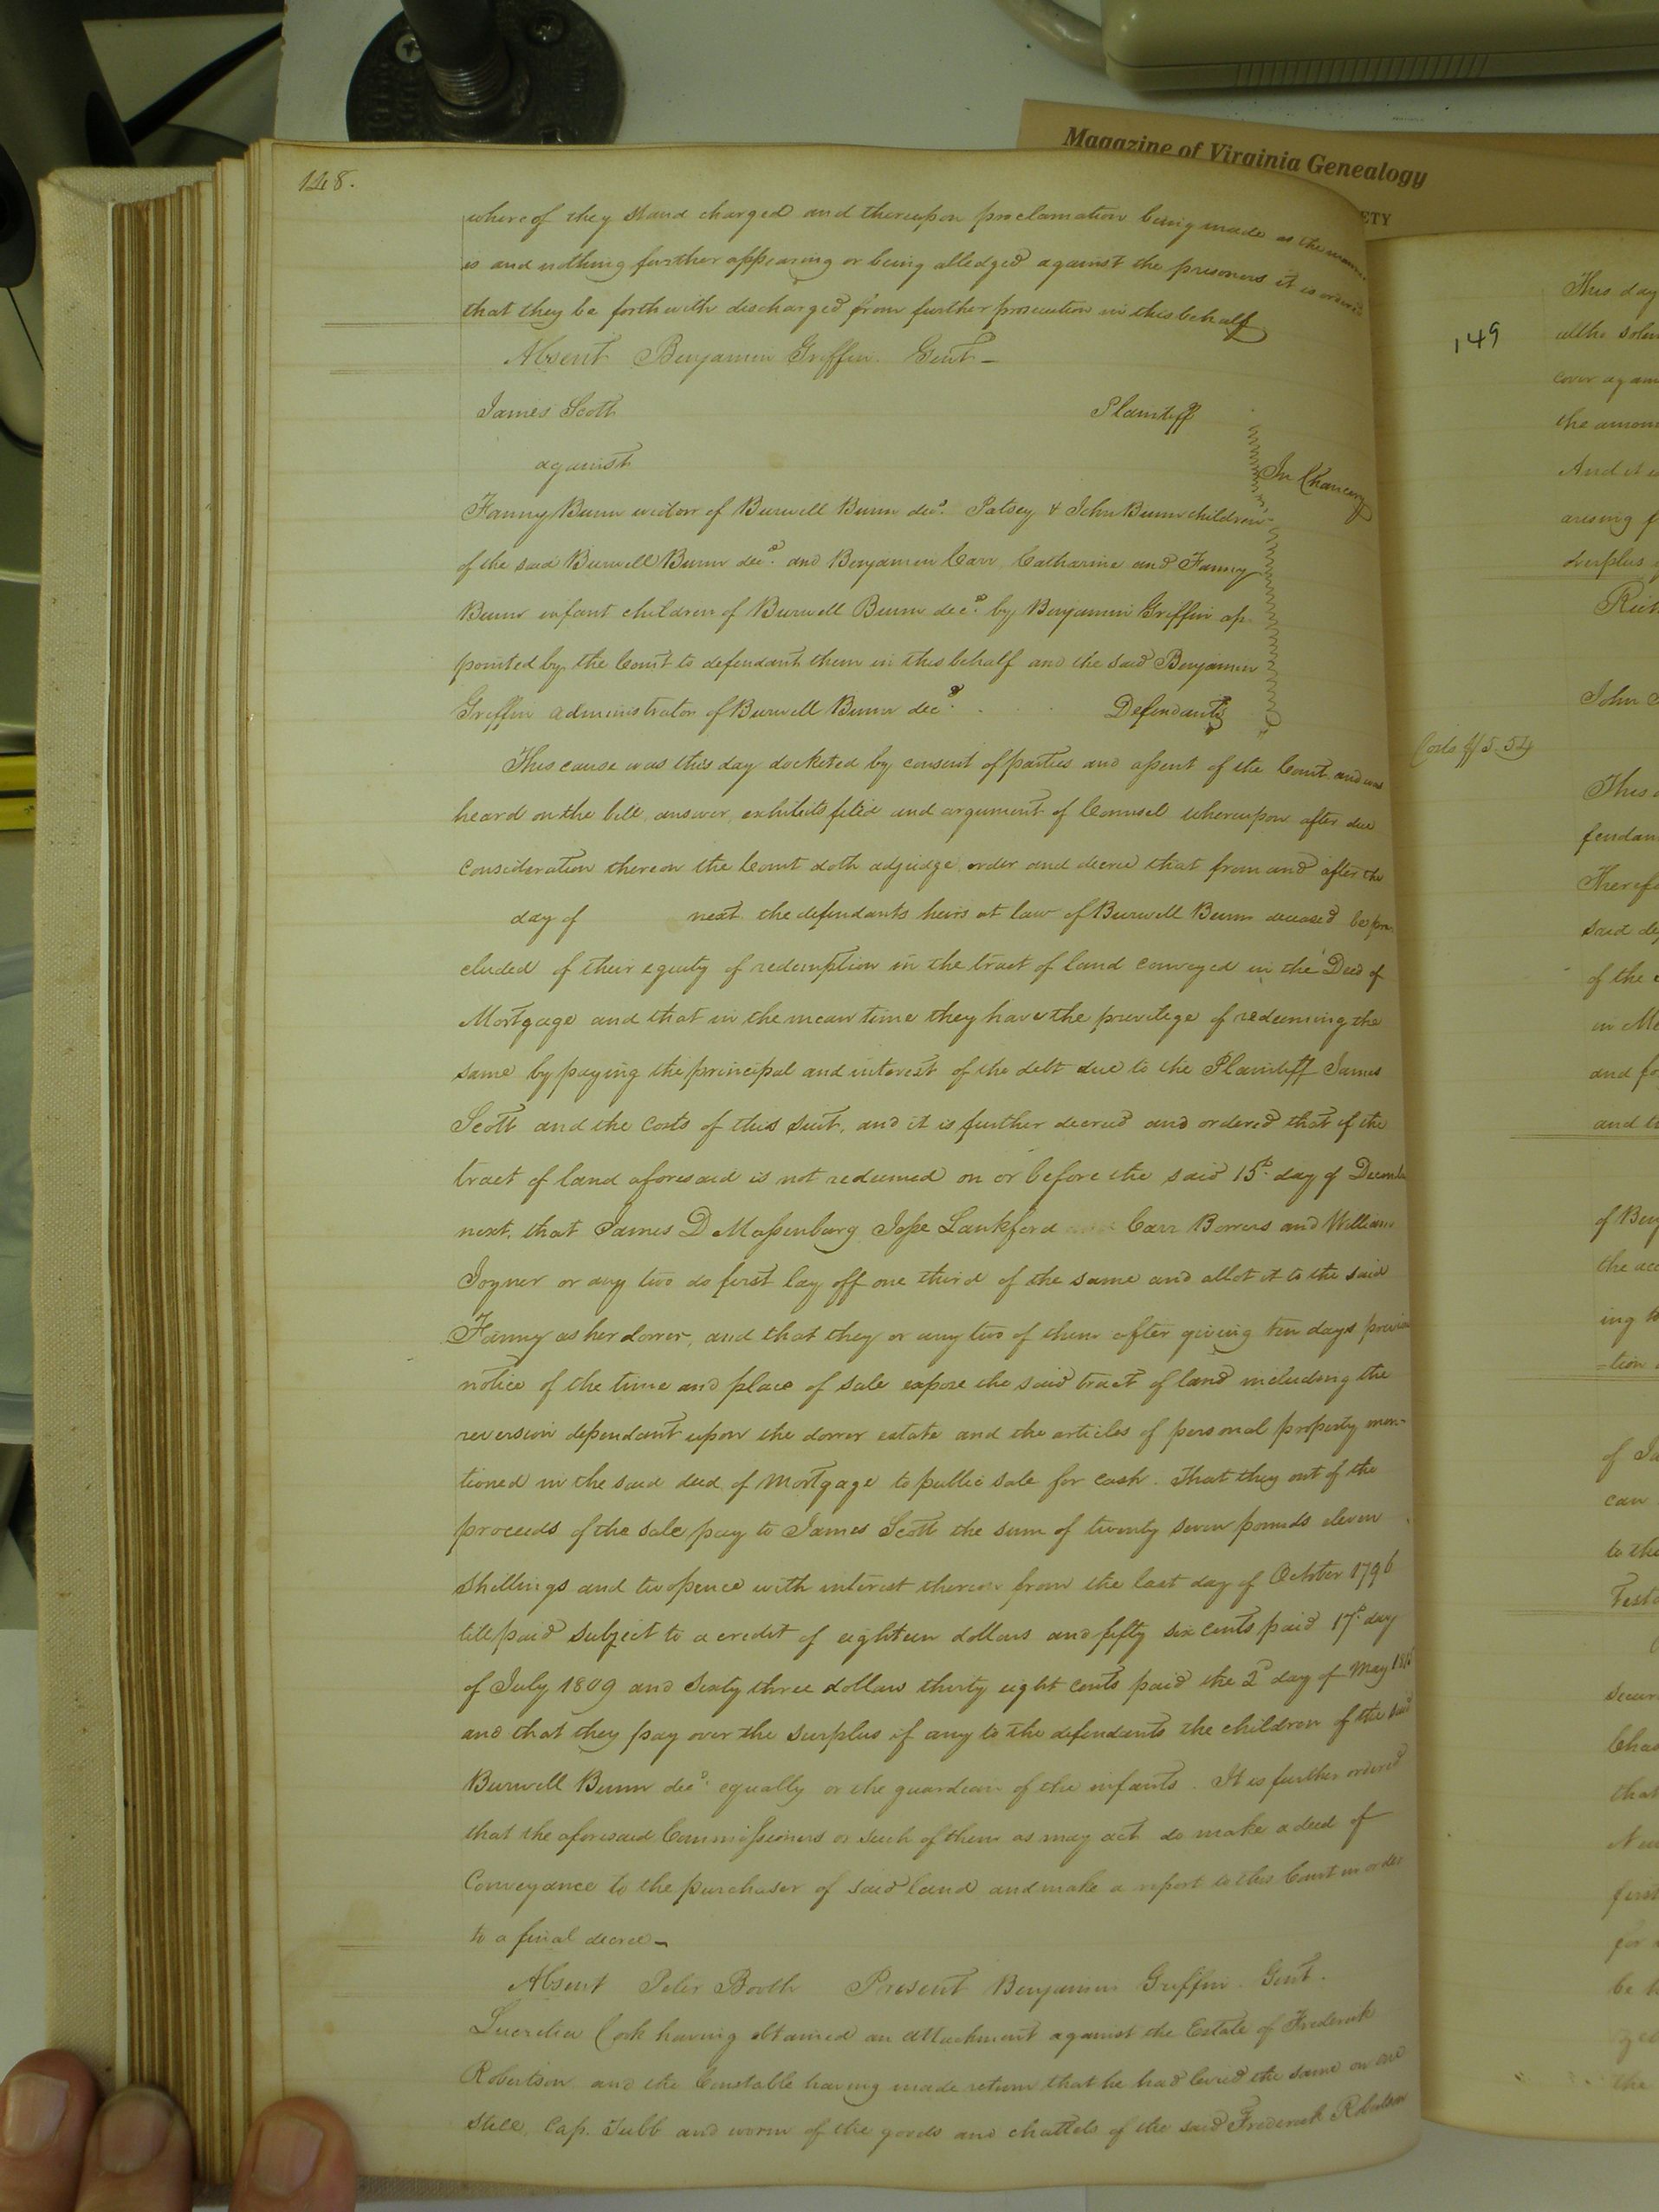 Magazine of Virginia Genealogy
ETY
148.
whereof they stand charged and thereupon proclamation being made as the manner
is and nothing further appearing or being alledged against the prisoners it is ordered
that they be forthwith discharged from further prosecution in this behalf
Absent Benjamin Griffin Gent
James Scott Plaintiff
against
In Chancery
Fanny Bunn widow of Burwell Bunn decd. Patsey & John Bunn children
of the said Burwell Bunn decd. and Benjamin Carr, Catharine and Fanny
Bunn infant children of Burwell Bunn decd. by Benjamin Griffin ap
pointed by the Court to defendant them in this behalf and the said Benjamin
Griffin administrator of Burwell Bunn decd. Defendants
This cause was this day docketed by consent of parties and assent of the Court and was
heard on the bill, answer, exhibits filed and argument of Counsel whereupon after due
consideration thereon the Court doth adjudge, order and decree that from and after the
day of next the defendants heirs at law of Burwell Bunn deceased be pre
cluded of their equity of redemption in the tract of land conveyed in the Deed of
Mortgage and that in the mean time they have the privilege of redeeming the
same by paying the principal and interest of the debt due to the Plaintiff James
Scott and the costs of this suit, and it is further decreed and ordered that if the
tract of land aforesaid is not redeemed on or before the said 15th. day of December
next, that James D Massenburg Jesse Lankford Carr Bowers and William
Joyner or any two do first lay off one third of the same and allot it to the said
Fanny as her dower, and that they or any two of them after giving ten days previous
notice of the time and place of sale expose the said tract of land including the
reversion dependant upon the dower estate and the articles of personal property men-
tioned in the said deed of mortgage to public sale for cash. That they out of the
proceeds of the sale pay to James Scott the sum of twenty seven pounds eleven
shillings and twopence with interest thereon from the last day of October 1796
till paid subject to a credit of eighteen dollars and fifty six cents paid 17th. day
of July 1809 and Sixty three dollars thirty eight cents paid the 2d day of May
and that they pay over the surplus if any to the defendants the children of the said
Burwell Bunn decd. equally or the guardian of the infants. It is further ordered
that the aforesaid Commissioners or such of them as may act do make a deed of
Conveyance to the purchaser of said land and make a report to this Court in order
to a final decree
Absent Peter Booth Present Benjamin Griffin. Gent.
Lucretia Cook having obtained an attachment against the Estate of Frederick
Robertson and the Constable having made return that he had levied the same on one
Still, Cap. Tubb and worm of the goods and chattels of the said Frederick Robertson
149
This day
cover again
the amoun
And it i
arising f
surplus
Rich
John
Costs $5-54
This
fendan
Therefo
said de
of the
in
and fo
and
of Ben
the acc
ing
=tion
of
can
to the
Test
secur
Chas
that
first
for
be
the